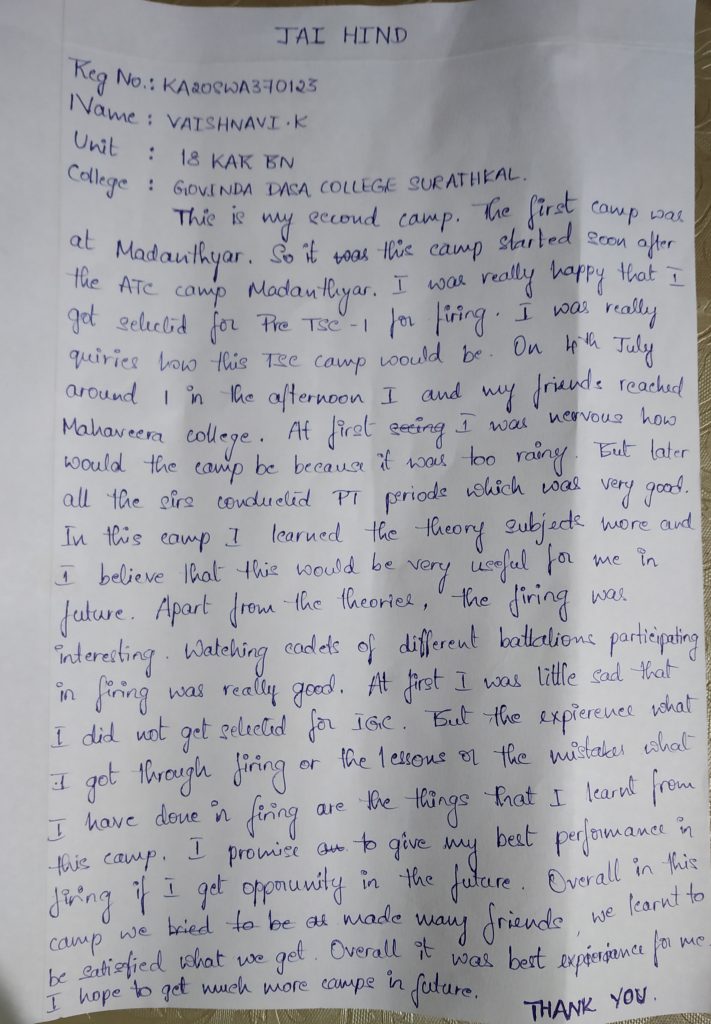 JAI HIND
Reg No.: KA20SWA370123
Name : VAISHNAVI.K
Unit : 18 KAR BN
College : GOVINDA DASA COLLEGE SURATHKAL.
This is my second camp. The first camp was
at Madanthyar. So it was this camp started soon after
the ATC camp Madanthyar. I was really happy that I
got selected for Pre TSC-1 for firing. I was really
quiries how this TSC camp would be. On 4th July
around 1 in the afternoon I and my friends reached
Mahaveera college. At first seeing I was nervous how
would the camp be because it was too rainy. But later
all the sirs conducted PT periods which was very good.
In this camp I learned the theory subjects more and
I believe that this would be very useful for me in
future. Apart from the theories, the firing was
interesting. Watching cadets of different battalions participating
in firing was really good. At first I was little sad that
I did not get selected for IGC. But the expierence what
I got through firing or the lessons or the mistakes what
I have done in firing are the things that I learnt from
this camp. I promise to give my best performance in
firing if I get oppourunity in the future. Overall in this
camp we tried to be as made many friends, we learnt to
be satisfied what we get. Overall it was best for me.
I hope to get much more camps in future.
THANK YOU.